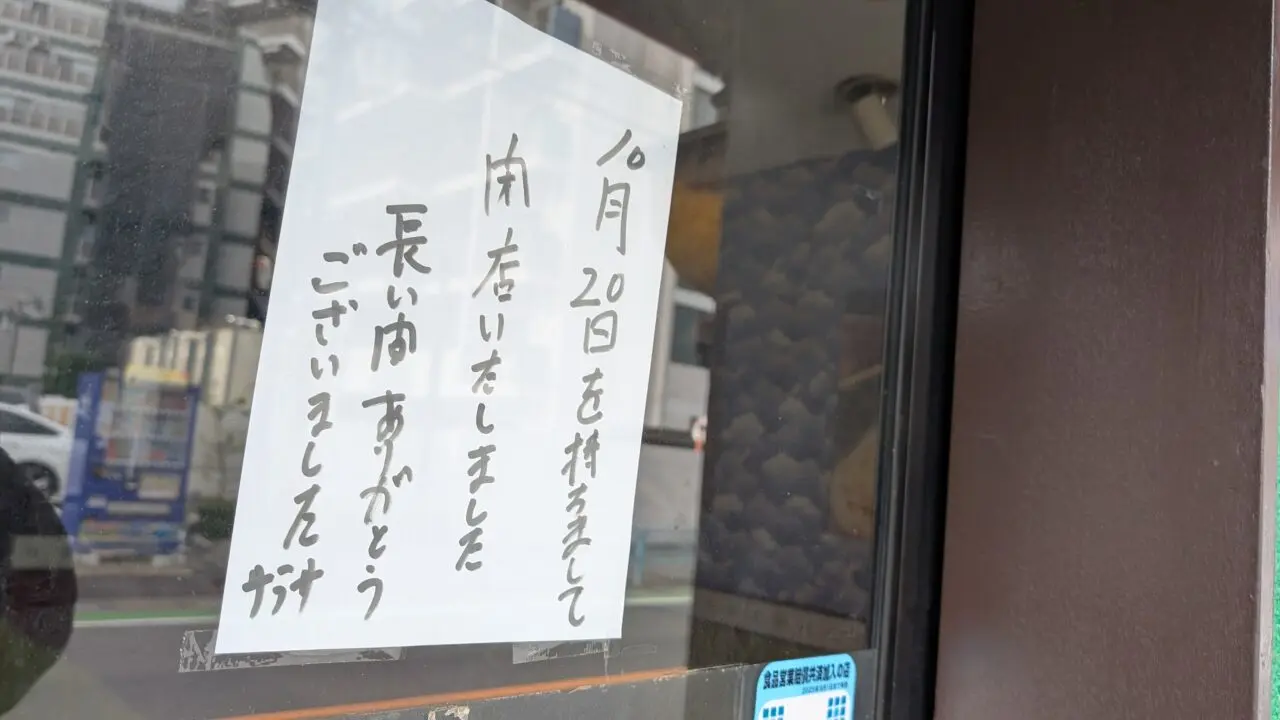 10月20日を持ちまして
閉店いたしました
長い間ありがとう
ございました
サラサ
食品営業賠償共済加入の店